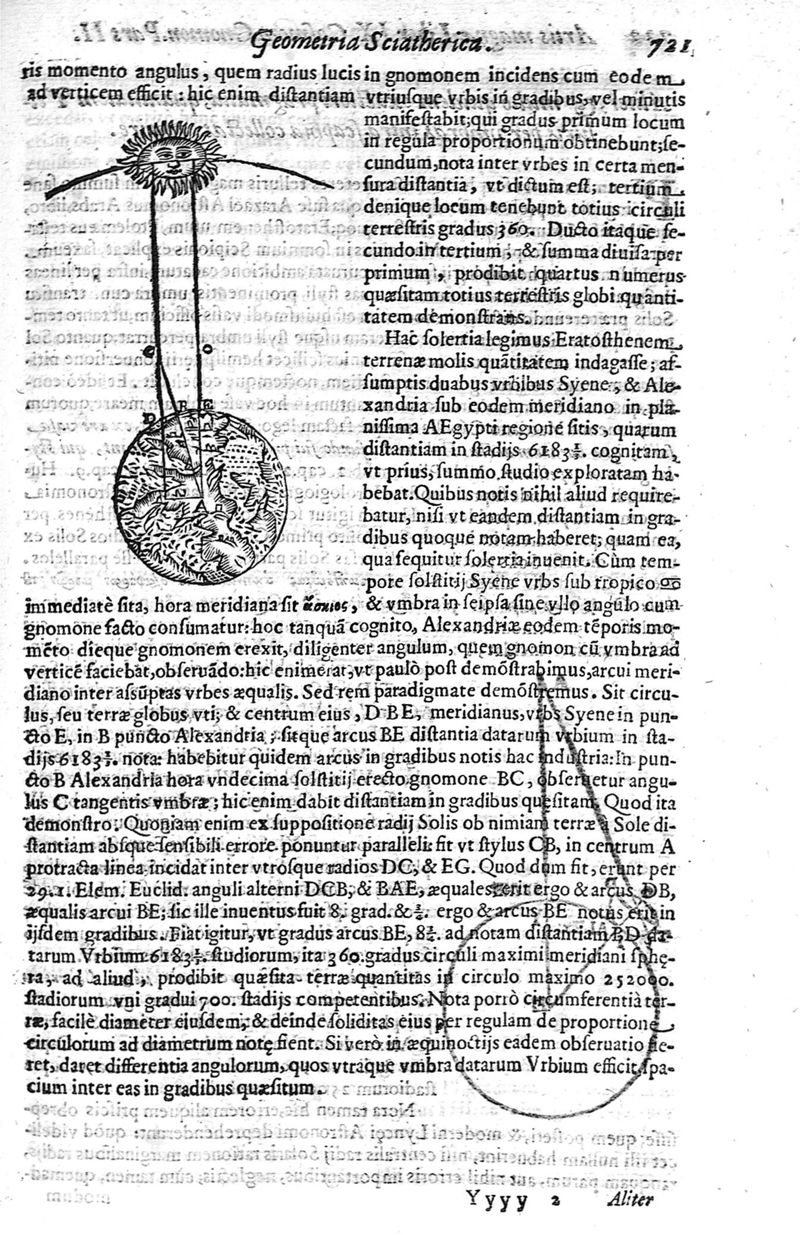 Geometria Sciatherica. 721
ris momento angulus, quem radius lucis in gnomonem incidens cum eodem
ad verticem efficit: hic enim distantiam vtriusque vrbis in gradibus, vel minutis
manifestabit; qui gradus primum locum
in regula proportionum obtinebunt; se-
cundum, nota inter vrbes in certa men-
sura distantia, vt dictum est; tertium
denique locum tenebunt totius circuli
terrestris gradus 360. Ducto itaque se-
cundo in tertium, & summa diuisa per
primum, prodibit quartus numerus
quæsitam totius terrestris globi quanti-
tatem demonstrans.
Hac solertia legimus Eratosthenem
terrenæ molis quãtitatem indagasse; as-
sumptis duabus vrbibus Syene, & Ale-
xandria sub eodem meridiano in pla-
nissima AEgypti regione sitis, quarum
distantiam in stadijs 6183⅓. cognitam,
vt prius, summo studio exploratam ha-
bebat. Quibus notis nihil aliud require-
batur, nisi vt eandem distantiam in gra-
dibus quoque notam haberet; quam ea,
qua sequitur solertia inuenit. Cùm tem-
pore solstitij Syene vrbs sub tropico ♋
immediatè sita, hora meridiana sit ἄσκιος, & vmbra in seipsa sine vllo angulo cum
gnomone facto consumatur: hoc tanquã cognito, Alexandriæ eodem tẽporis mo-
mẽto dieque gnomonem erexit, diligenter angulum, quem gnomon cũ vmbra ad
verticẽ faciebat, obseruãdo: hic enim erat, vt paulò post demõstrabimus, arcui meri-
diano inter assũptas vrbes æqualis. Sed rem paradigmate demõstremus. Sit circu-
lus, seu terræ globus vti; & centrum eius, D B E, meridianus, vrbs Syene in pun-
cto E, in B puncto Alexandria; sitque arcus BE distantia datarum vrbium in sta-
dijs 6183⅓. nota: habebitur quidem arcus in gradibus notis hac industria: In pun-
cto B Alexandria hora vndecima solstitij erecto gnomone BC, obseruetur angu-
lus C tangentis vmbræ; hic enim dabit distantiam in gradibus quæsitam. Quod ita
demonstro: Quoniam enim ex suppositione radij Solis ob nimiam terræ à Sole di-
stantiam absque sensibili errore ponuntur paralleli: fit vt stylus CB, in centrum A
protracta linea incidat inter vtrosque radios DC, & EG. Quod dum fit, erunt per
29. 1. Elem. Euclid. anguli alterni DCB, & BAE, æquales: erit ergo & arcus DB,
æqualis arcui BE; sic ille inuentus fuit 8. grad. & ½. ergo & arcus BE notus erit in
ijsdem gradibus. Fiat igitur, vt gradus arcus BE, 8½. ad notam distantiam BD da-
tarum Vrbium 6183⅓. studiorum, ita 360. gradus circuli maximi meridiani sphę-
ra, ad aliud, prodibit quæsita terræ quantitas in circulo maximo 252000.
stadiorum vni gradui 700. stadijs competentibus. Nota porrò circumferentia ter-
ræ, facilè diameter eiusdem, & deinde soliditas eius per regulam de proportione
circulorum ad diametrum notę fient. Si verò in æquinoctijs eadem obseruatio fie-
ret, daret differentia angulorum, quos vtraque vmbra datarum Vrbium efficit, spa-
cium inter eas in gradibus quæsitum.
Yyyy 2 Aliter
D
E
A